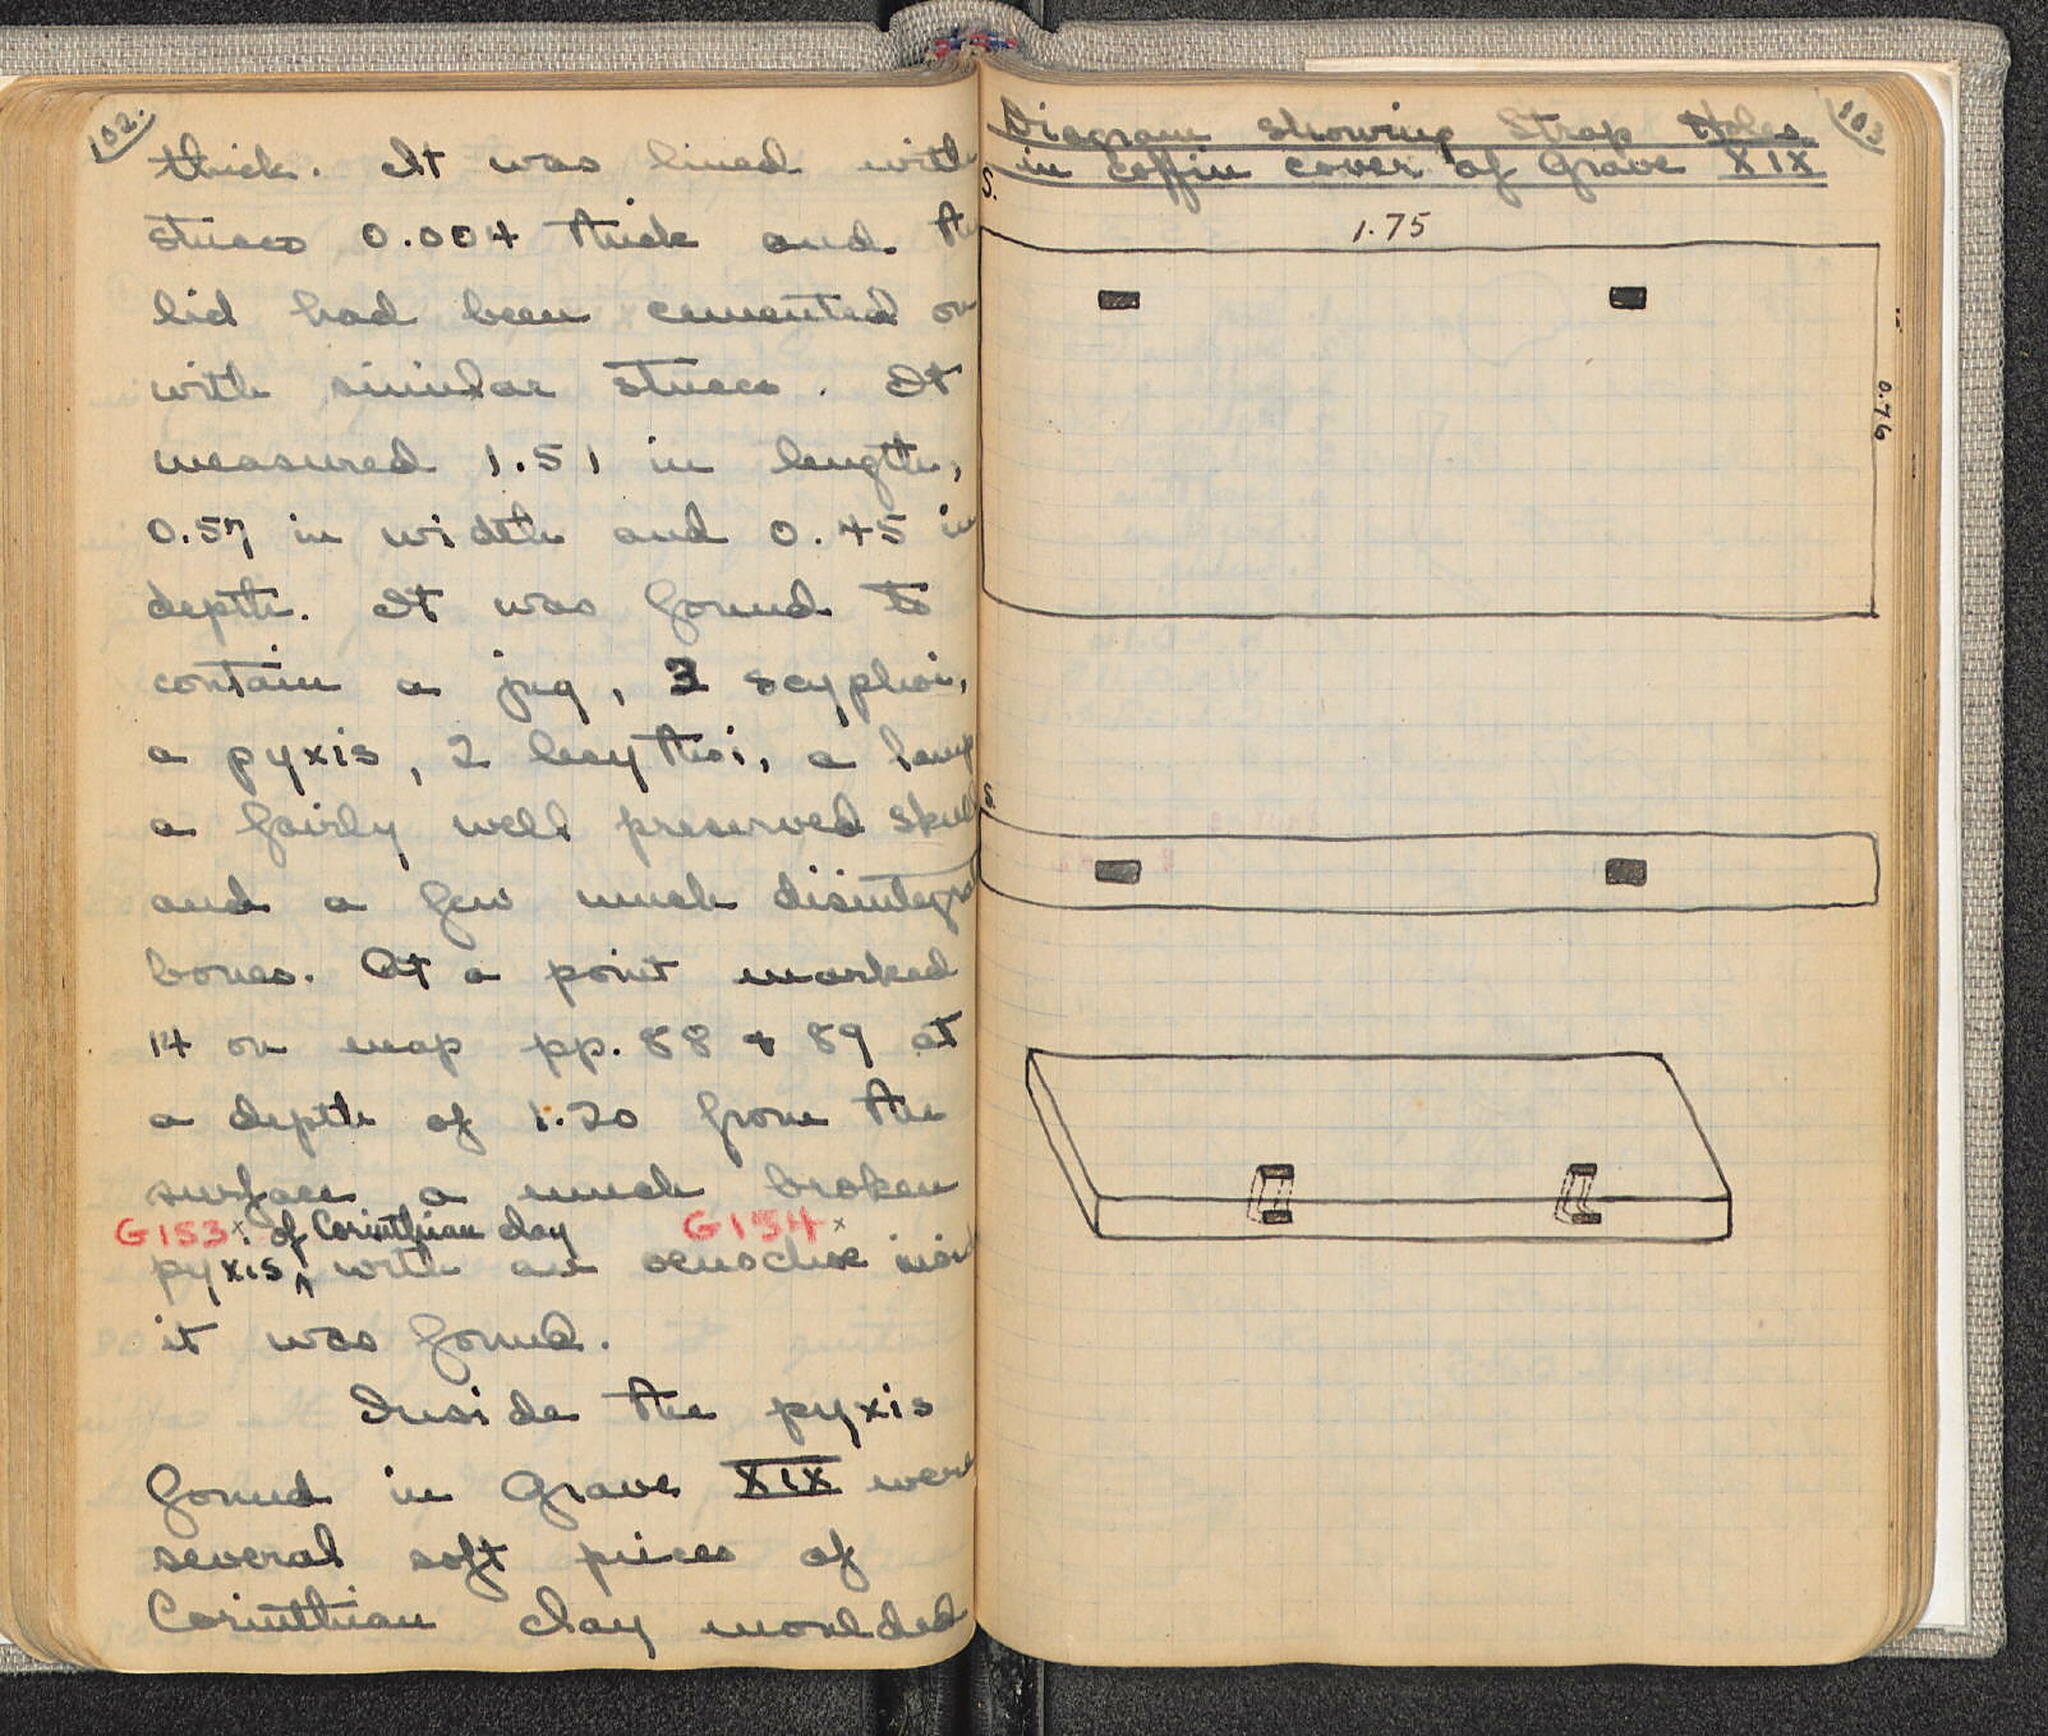 102.
thick. It was lined with
stucco 0.004 thick and the
lid had been cemented on
with similar stucco. It
measured 1.51 in length,
0.57 in width and 0.45 in
depth. It was found to
contain a jug, 3 scyphoi,
a pyxis, 2 lecythoi, a lamp
a fairly well preserved skull
and a few much disintegrat
bones. At a point marked
14 on map pp. 88 & 89 at
a depth of 1.20 from the
surface a much broken
G153 x of Corinthian clay G154 x
pyxis ^ with an oenochoe inside
it was found.
Inside the pyxis
found in Grave XIX were
several soft pieces of
Corinthian clay moulded
103
Diagram showing Strap Holes
in coffin cover of Grave XIX
S.
1.75
0.76
S.